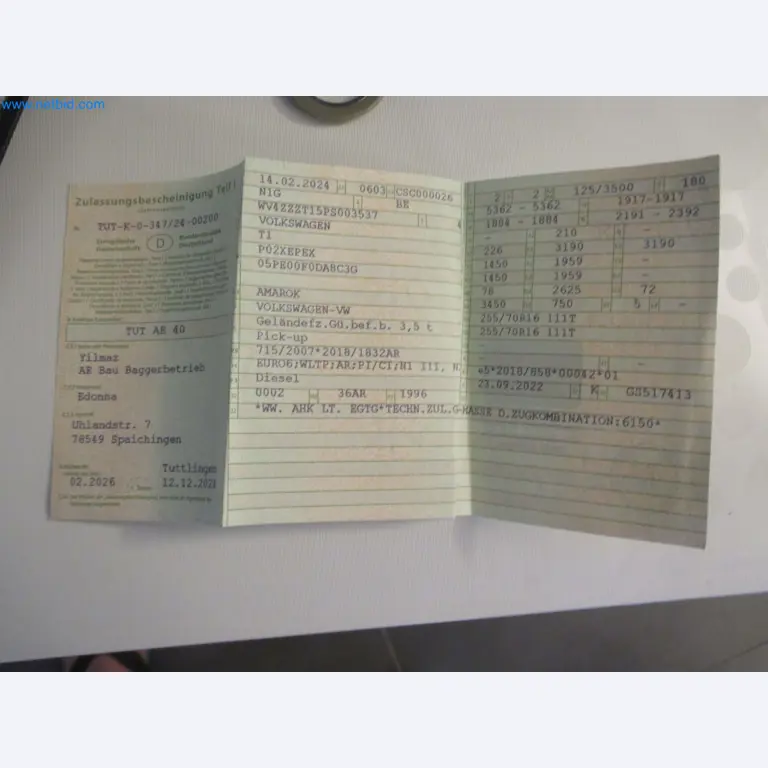 www.netbid.com
Zulassungsbescheinigung Teil I
TUT-K-0-347/24-00200
Europäische
D
Bundesrepublik
Deutschland
TUT AE 40
Yilmaz
AE Bau Baggerbetrieb
Edonna
Uhlandstr. 7
78549 Spaichingen
Tuttlingen
02.2026
14.02.2024 0603 CSC000026
N1G BE
WV4ZZZT15PS003537
VOLKSWAGEN
T1
P02XEPEX
05PE00F0DA8C3G
AMAROK
VOLKSWAGEN-VW
Geländefz.Gü.bef.b. 3,5 t
Pick-up
715/2007*2018/1832AR
EURO6;WLTP;AR;PI/CI;N1 III, N
Diesel
0002 36AR 1996
*WW. AHK LT. EGTG*TECHN.ZUL.G-MASSE D.ZUGKOMBINATION:6150*
2 2 125/3500 180
5362 - 5362 1917-1917
1884 - 1884 2191 - 2392
- 210 -
226 3190 3190
1450 1959 -
1460 1959 -
78 2625 72
3450 750 5 -
255/70R16 111T
255/70R16 111T
-
- -
e5*2018/858*00042*01
23.09.2022 K GS517413